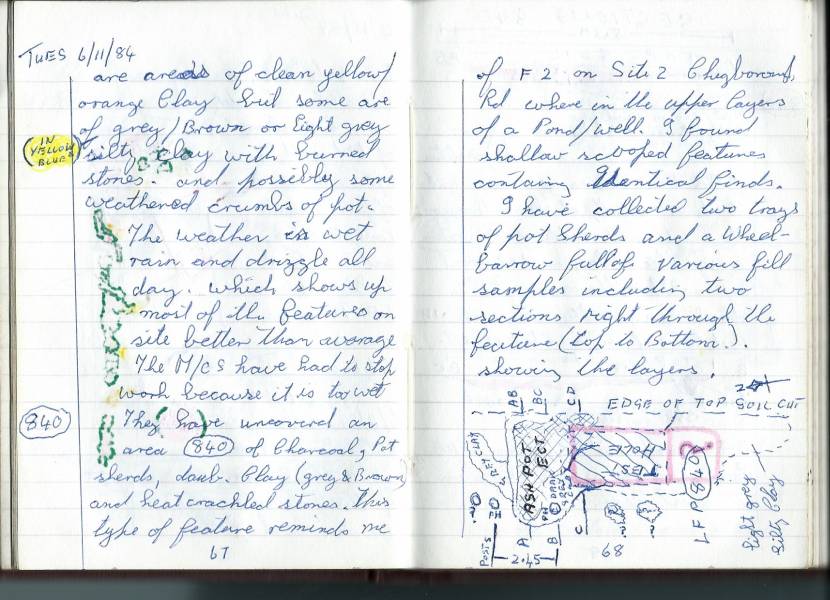 TUES 6/11/84
are areas of clean yellow/
orange Clay but some are
of grey/Brown or Light grey
IN YELLOW BLUE
silty Clay with burned
stones. and possibly some
weathered crumbs of pot.
The weather is wet
rain and drizzle all
day. which shows up
most of the features on
site better than average
The M/CS have had to stop
work because it is to wet
840
They have uncoverd an
area 840 of Charcoal, Pot
sherds, daub. Clay (grey & Brown)
and heat crackled stones. this
type of feature reminds me
67
of F2 on Site 2 Chigborough
Rd where in the upper layers
of a Pond/well. I found
shallow scooped features
containg identical finds.
I have collected two trays
of pot Sherds and a Wheel-
barrow full of various fill
samples including two
sections right through the
feature (top to Bottom).
showing the layers.
AB
BC
CD
EDGE OF TOP SOIL CUT
RE CLAY
ASH POT
ECT
DARK
GREY
TEST
HOLE
?
LFP 840
light grey
Silty Clay
POSTS
A
B
C
2.45
68